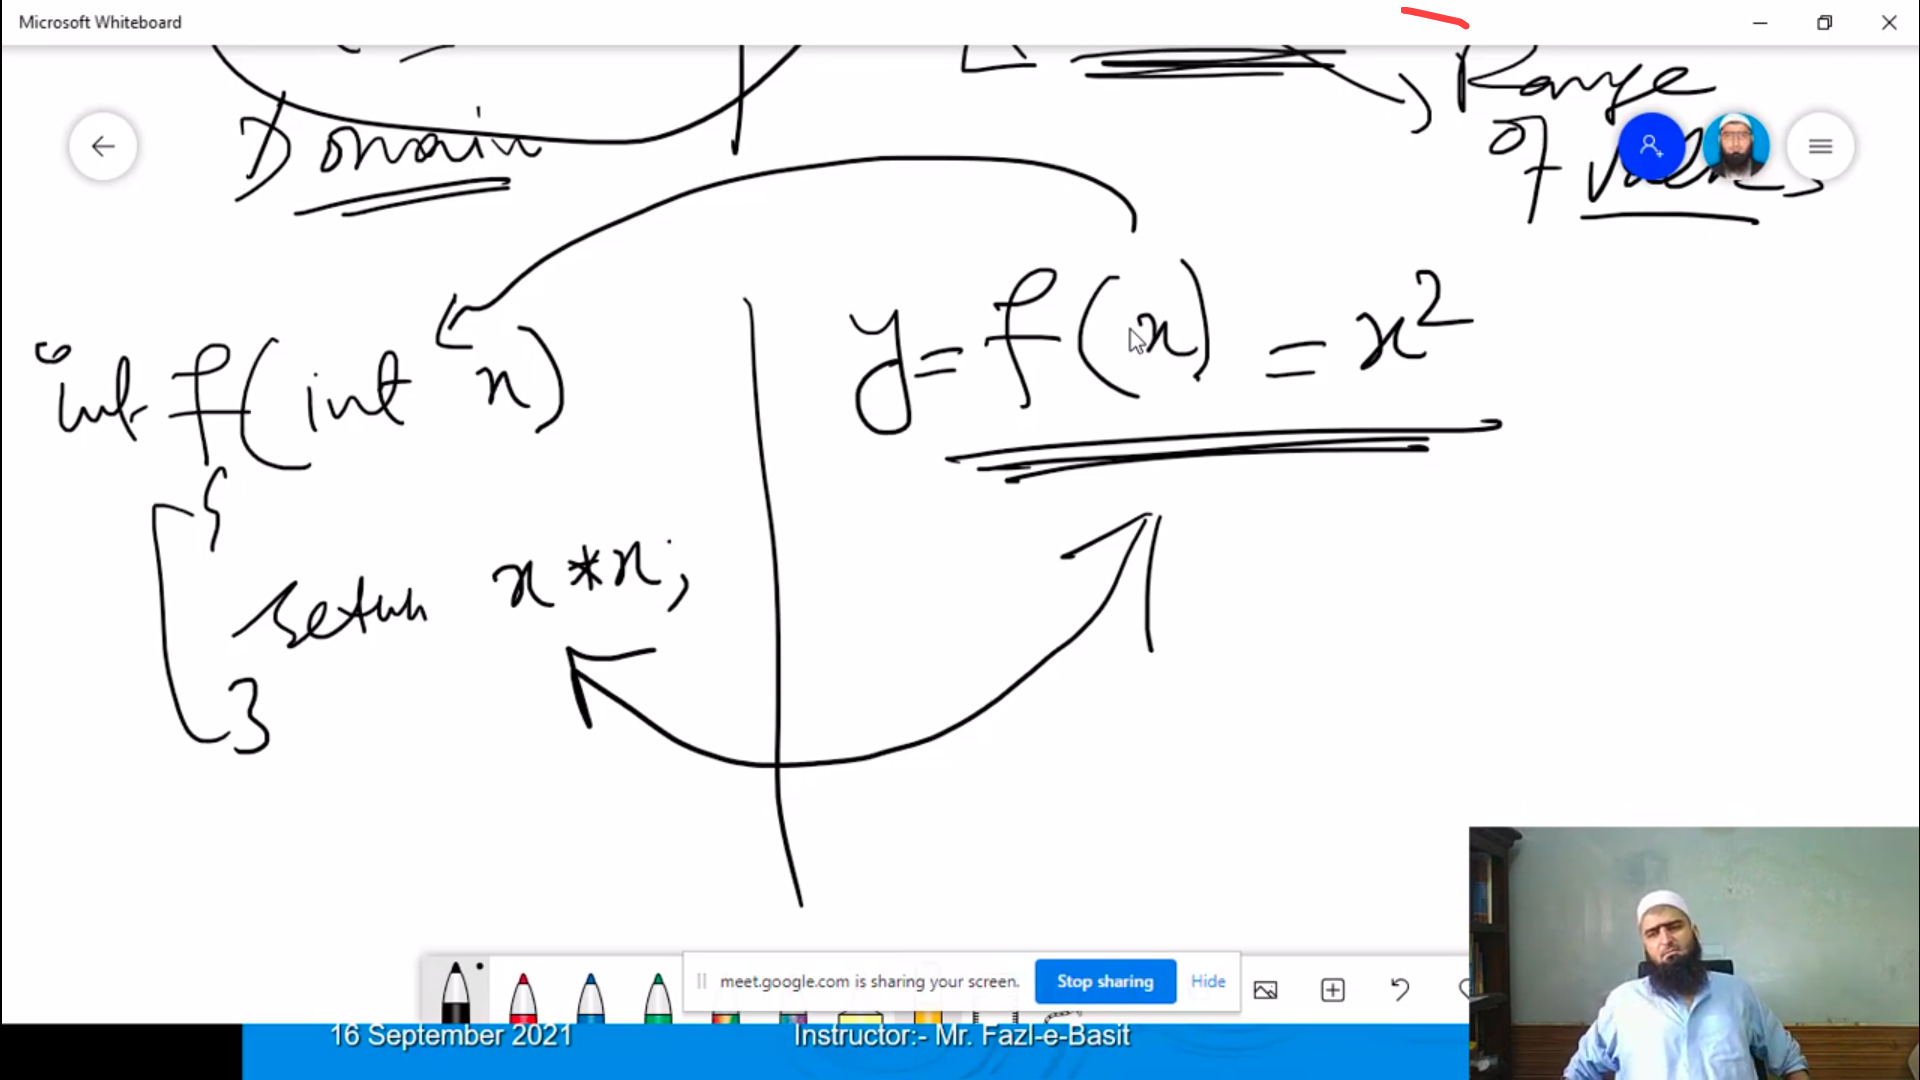 Microsoft Whiteboard
Range
of Values
Domain
y = f(x) = x²
int f(int x)
{
return x * x;
}
meet.google.com is sharing your screen.
Stop sharing
Hide
16 September 2021
Instructor:- Mr. Fazl-e-Basit